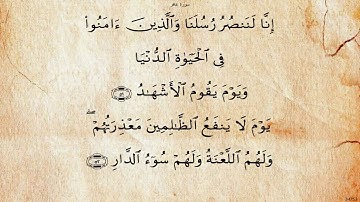 إِنَّا لَنَنصُرُ رُسُلَنَا وَٱلَّذِينَ ءَامَنُوا۟
فِى ٱلْحَيَوٰةِ ٱلدُّنْيَا
وَيَوْمَ يَقُومُ ٱلْأَشْهَـٰدُ ﴿٥١﴾
يَوْمَ لَا يَنفَعُ ٱلظَّـٰلِمِينَ مَعْذِرَتُهُمْ ۖ
وَلَهُمُ ٱللَّعْنَةُ وَلَهُمْ سُوٓءُ ٱلدَّارِ ﴿٥٢﴾